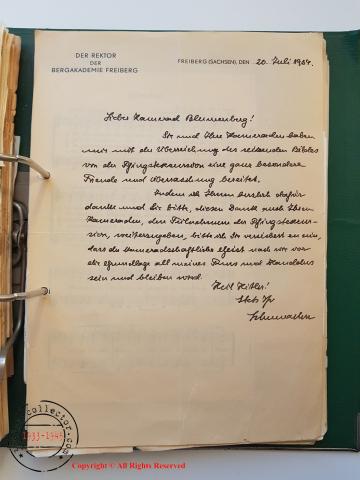 DER REKTOR
DER
BERGAKADEMIE FREIBERG
FREIBERG (SACHSEN), DEN 20. Juli 1934.
Lieber Kamerad Blumenberg!
Sie und Ihre Kameraden haben
mir mit der Überreichung des reizenden Bildes
von der Pfingstexkursion eine ganz besondere
Freude und Überraschung bereitet.
Indem ich Ihnen herzlich dafür
danke und Sie bitte, diesen Dank auch Ihren
Kameraden, den Teilnehmern der Pfingstexkur-
sion, weiterzugeben, bitte ich Sie versichert zu sein,
dass der kameradschaftliche Geist nach wie vor
die Grundlage all meines Tuns und Handelns
sein und bleiben wird.
Heil Hitler!
Stets Ihr
Schumacher
collector.com
1933-1945
Copyright © All Rights Reserved